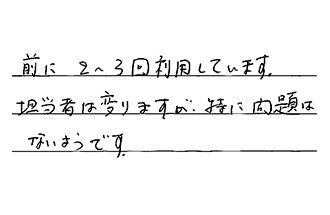 前に 2～3回利用しています。
担当者は変りますが、特に問題は
ないようです。